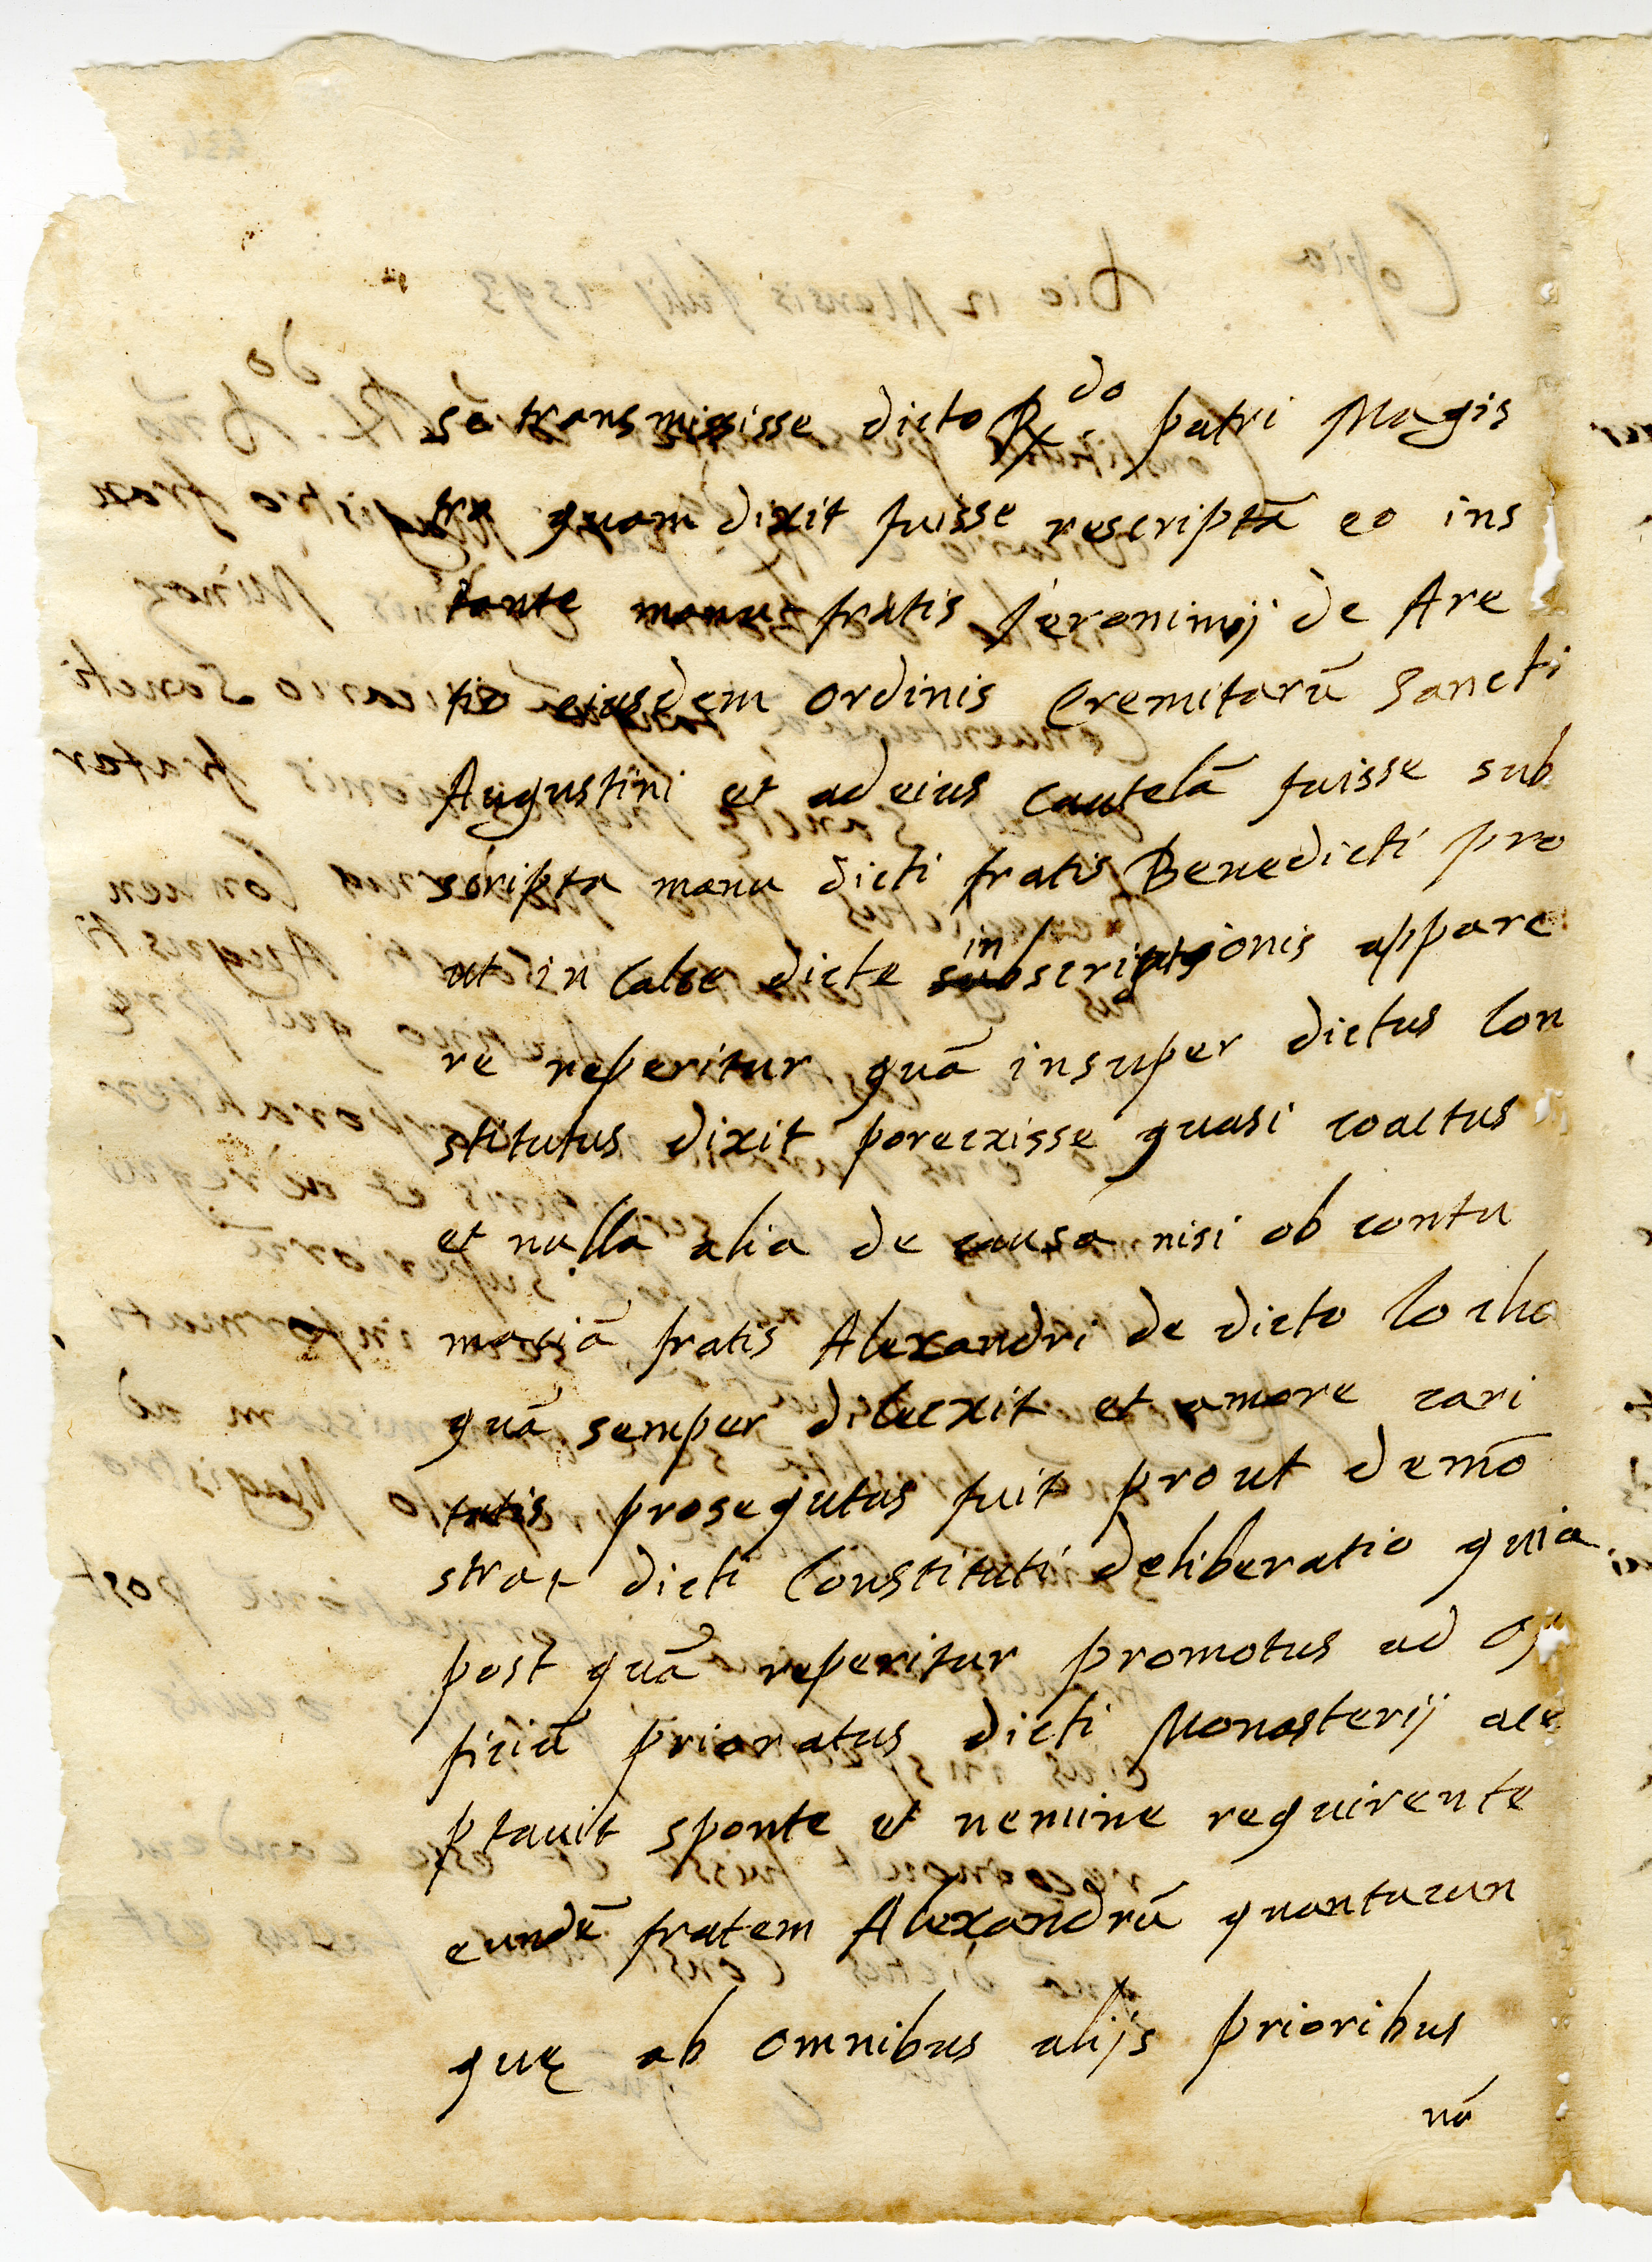 se transmisisse dicto R.do patri Magis
tro quam dixit fuisse rescriptā eo ins
tante manu fratis Jeronimij de Are
tio eiusdem ordinis Eremitarū Sancti
Augustini et ad eius cautelā fuisse sub
scripta manu dicti fratis Benedicti pro
ut in calce dicte inscriptionis appare
re reperitur quā insuper dictus Con
stitutus dixit porecxisse quasi coactus
et nulla alia de causa nisi ob contu
maciā fratis Alexandri de dicto lo cho
quā semper dilecxit et amore cari
tatis prosequtus fuit prout demō
strat dicti Constituti deliberatio quia
post quā reperitur promotus ad of
ficiū prioratus dicti Monasterij ace
ptauit sponte et nemine requirente
eundē fratem Alexandrū quantucun
quę ab omnibus alijs prioribus
nō